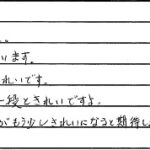 。
います。
れいです。
一段ときれいですよ。
がもう少しきれいになると期待し